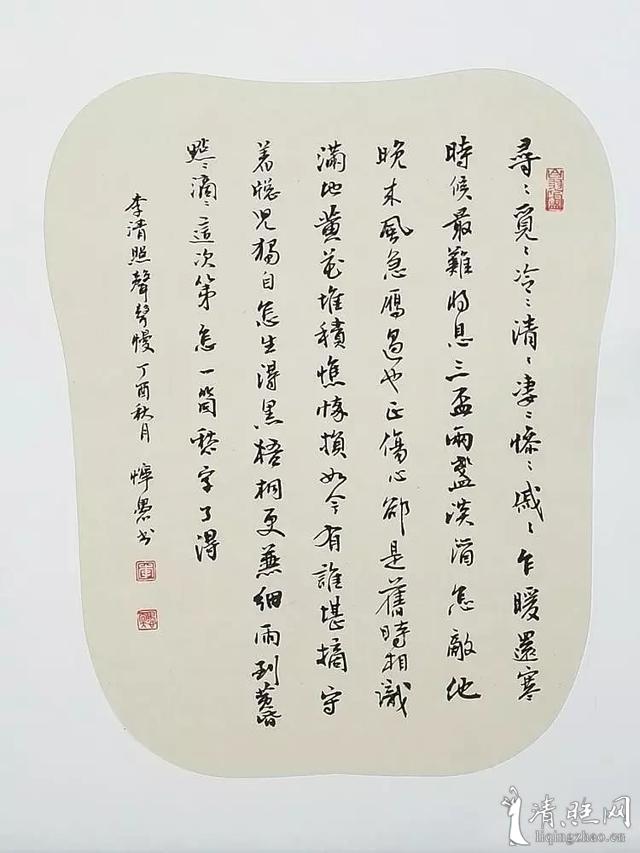 尋〻覓〻冷〻清〻凄〻慘〻戚〻乍暖還寒
時候最難将息三盃兩盞淡酒怎敵他
晚来風急鴈過也正傷心卻是舊時相識
滿地黃花堆積憔悴損如今有誰堪摘守
着牕児獨自怎生得黑梧桐更兼細雨到黃昏
點〻滴〻這次第怎一箇愁字了得
李清照聲聲慢 丁酉秋月 书
清照网
liqingzhao.com